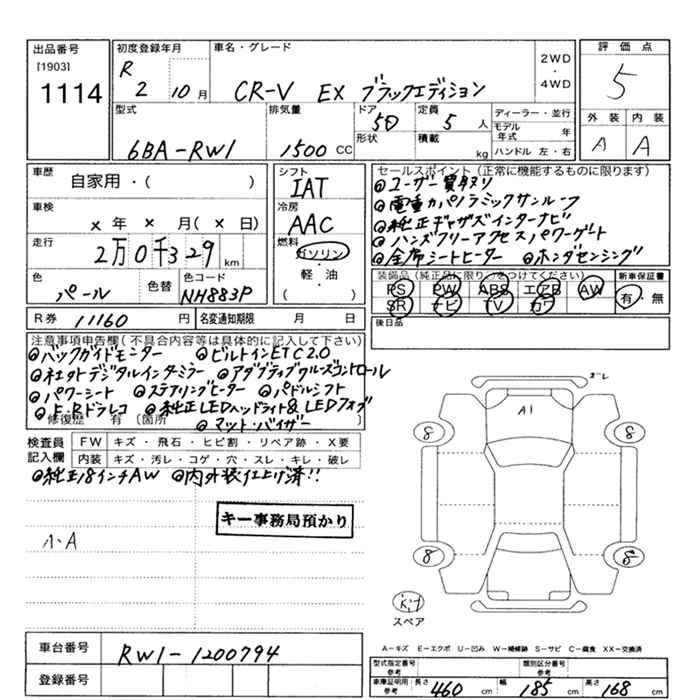 出品番号
[1903]
1114
初度登録年月
R 2 10 月
車名・グレード
CR-V EX ブラックエディション
2WD
・
4WD
評価点
5
外装 内装
A A
型式
6BA-RW1
排気量
1500 CC
ドア 5D
形状
定員 5 人
積載 kg
ディーラー・並行
モデル年式 年
ハンドル 左・右
車歴
自家用・( )
車検
× 年 × 月( × 日)
走行
2万0千329 km
色
パール
色替
色コード
NH883P
シフト
IAT
冷房
AAC
燃料
ガソリン
・
軽・油
( )
セールスポイント(正常に機能するものに限ります)
◎ユーザー買取り
◎電動パノラミックサンルーフ
◎純正ギャザズインターナビ
◎ハンズフリーアクセスパワーゲート
◎全席シートヒーター ◎ホンダセンシング
装備品(純正品に限り○をつけてください)
PS PW ABS エアB AW
SR ナビ TV カワ
新車保証書
有・無
後日品
R券 11160 円
名変通知期限 月 日
注意事項申告欄(不具合内容等は具体的に記入して下さい)
◎バックガイドモニター ◎ビルトインETC2.0
◎ネオトデジタルインターミラー ◎アダプティブクルーズコントロール
◎パワーシート ◎ステアリングヒーター ◎パドルシフト
◎F.Rドラレコ ◎純正LEDヘッドライト&LEDフォグ
修復歴 有 (箇所 )
◎マット・バイザー
検査員記入欄
FW キズ・飛石・ヒビ割・リペア跡・X要
内装 キズ・汚レ・コゲ・穴・スレ・キレ・破レ
◎純正18インチAW ◎内外装仕上げ済!!
キー事務局預かり
小A
A1
8
8
8
8
スペア
A-キズ E-エクボ U-凹み W-補修跡 S-サビ C-腐食 XX-交換済
車台番号
RW1-1200794
登録番号
型式指定番号
参考
類別区分番号
参考
車庫証明用
参考
長さ 460 cm
幅 185 cm
高さ 168 cm